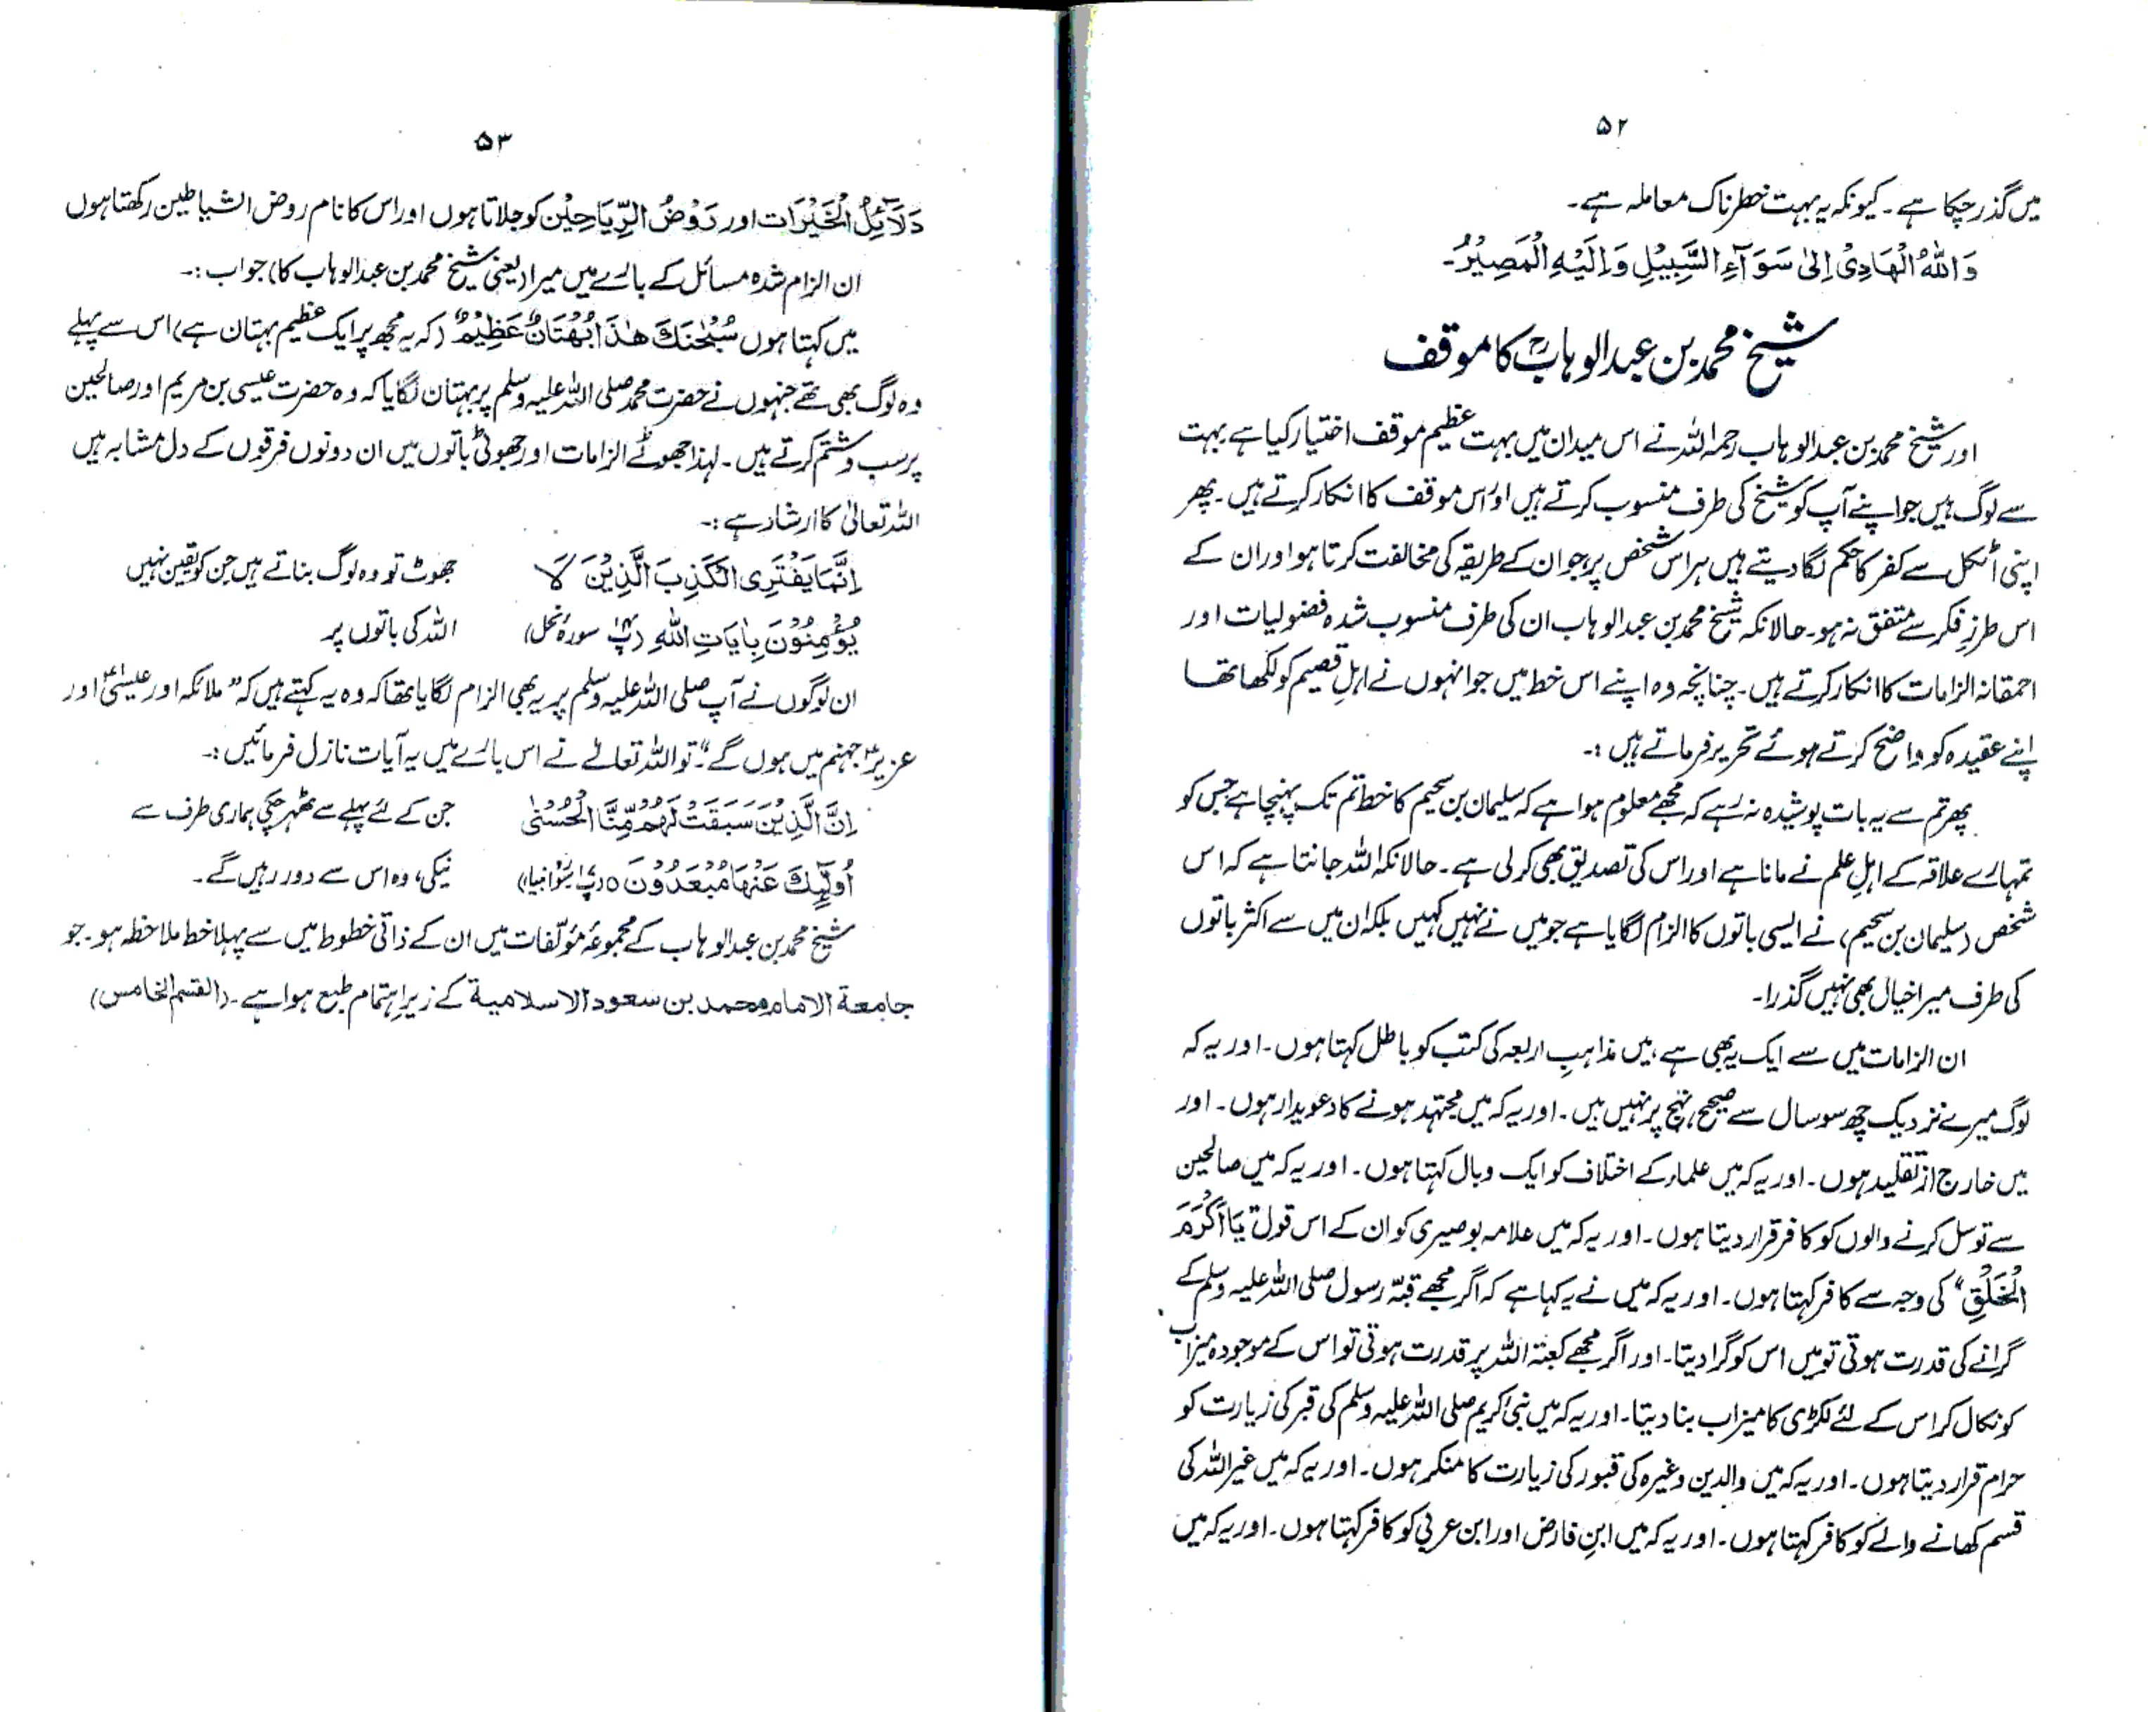 ۵۲
میں گذر چکا ہے۔ کیونکہ یہ بہت خطرناک معاملہ ہے۔
وَاللّٰهُ الْهَادِیْ اِلیٰ سَوَآءِ السَّبِیْلِ وَاِلَیْهِ الْمَصِیْرُ۔
شیخ محمد بن عبدالوہابؒ کا موقف
اور شیخ محمد بن عبدالوہاب رحمہ اللہ نے اس میدان میں بہت عظیم موقف اختیار کیا ہے بہت
سے لوگ ہیں جو اپنے آپ کو شیخ کی طرف منسوب کرتے ہیں اور اس موقف کا انکار کرتے ہیں۔ پھر
اپنی اٹکل سے کفر کا حکم لگا دیتے ہیں ہر اس شخص پر جو ان کے طریقہ کی مخالفت کرتا ہو اور ان کے
اس طرزِ فکر سے متفق نہ ہو۔ حالانکہ شیخ محمد بن عبدالوہاب ان کی طرف منسوب شدہ فضولیات اور
احمقانہ الزامات کا انکار کرتے ہیں۔ چنانچہ وہ اپنے اس خط میں جو انہوں نے اہلِ قصیم کو لکھا تھا
اپنے عقیدہ کو واضح کرتے ہوئے تحریر فرماتے ہیں :۔
پھر تم سے یہ بات پوشیدہ نہ رہے کہ مجھے معلوم ہوا ہے کہ سلیمان بن سحیم کا خط تم تک پہنچا ہے جس کو
تمہارے علاقہ کے اہلِ علم نے مانا ہے اور اس کی تصدیق بھی کر لی ہے۔ حالانکہ اللہ جانتا ہے کہ اس
شخص (سلیمان بن سحیم) نے ایسی باتوں کا الزام لگایا ہے جو میں نے نہیں کہیں بلکہ ان میں سے اکثر باتوں
کی طرف میرا خیال بھی نہیں گذرا۔
ان الزامات میں سے ایک یہ بھی ہے، میں مذاہبِ اربعہ کی کتب کو باطل کہتا ہوں۔ اور یہ کہ
لوگ میرے نزدیک چھ سو سال سے صحیح نہج پر نہیں ہیں۔ اور یہ کہ میں مجتہد ہونے کا دعویدار ہوں۔ اور
میں خارج از تقلید ہوں۔ اور یہ کہ میں علماء کے اختلاف کو ایک وبال کہتا ہوں۔ اور یہ کہ میں صالحین
سے توسل کرنے والوں کو کافر قرار دیتا ہوں۔ اور یہ کہ میں علامہ بوصیری کو ان کے اس قول ”یَا اَکْرَمَ
الْخَلْقِ“ کی وجہ سے کافر کہتا ہوں۔ اور یہ کہ میں نے یہ کہا ہے کہ اگر مجھے قبّہ رسول صلی اللہ علیہ وسلم کے
گرانے کی قدرت ہوتی تو میں اس کو گرا دیتا۔ اور اگر مجھے کعبۃ اللہ پر قدرت ہوتی تو اس کے موجودہ میزاب
کو نکال کر اس کے لئے لکڑی کا میزاب بنا دیتا۔ اور یہ کہ میں نبیٔ کریم صلی اللہ علیہ وسلم کی قبر کی زیارت کو
حرام قرار دیتا ہوں۔ اور یہ کہ میں والدین وغیرہ کی قبور کی زیارت کا منکر ہوں۔ اور یہ کہ میں غیر اللہ کی
قسم کھانے والے کو کافر کہتا ہوں۔ اور یہ کہ میں ابنِ فارض اور ابن عربی کو کافر کہتا ہوں۔ اور یہ کہ میں
۵۳
دَلَآئِلُ الْخَیْرَات اور رَوْضُ الرِّیَاحِیْن کو جلاتا ہوں اور اس کا نام روض الشیاطین رکھتا ہوں
ان الزام شدہ مسائل کے بارے میں میرا (یعنی شیخ محمد بن عبدالوہاب کا) جواب :۔
میں کہتا ہوں سُبْحٰنَكَ هٰذَا بُهْتَانٌ عَظِیْمٌ (کہ یہ مجھ پر ایک عظیم بہتان ہے) اس سے پہلے
وہ لوگ بھی تھے جنہوں نے حضرت محمد صلی اللہ علیہ وسلم پر بہتان لگایا کہ وہ حضرت عیسی بن مریم اور صالحین
پر سب وشتم کرتے ہیں۔ لہذا جھوٹے الزامات اور جھوٹی باتوں میں ان دونوں فرقوں کے دل مشابہ ہیں
اللہ تعالیٰ کا ارشاد ہے :۔
اِنَّمَا یَفْتَرِی الْکَذِبَ الَّذِیْنَ لَا جھوٹ تو وہ لوگ بناتے ہیں جن کو یقین نہیں
یُؤْمِنُوْنَ بِاٰیَاتِ اللهِ (پ۱۴ سورہ نحل) اللہ کی باتوں پر
ان لوگوں نے آپ صلی اللہ علیہ وسلم پر یہ بھی الزام لگایا تھا کہ وہ یہ کہتے ہیں کہ ”ملائکہ اور عیسیٰؑ اور
عزیرؑ جہنم میں ہوں گے“۔ تو اللہ تعالے نے اس بارے میں یہ آیات نازل فرمائیں :۔
اِنَّ الَّذِیْنَ سَبَقَتْ لَهُمْ مِّنَّا الْحُسْنٰی جن کے لئے پہلے سے ٹھہر چکی ہماری طرف سے
اُولٰٓئِكَ عَنْهَا مُبْعَدُوْنَ ○ (پ۱۷ سورۂ انبیاء) نیکی، وہ اس سے دور رہیں گے۔
شیخ محمد بن عبدالوہاب کے مجموعۂ مؤلّفات میں ان کے ذاتی خطوط میں سے پہلا خط ملاحظہ ہو۔ جو
جامعة الامام محمد بن سعود الاسلامیة کے زیرِ اہتمام طبع ہوا ہے۔ (القسم الخامس)